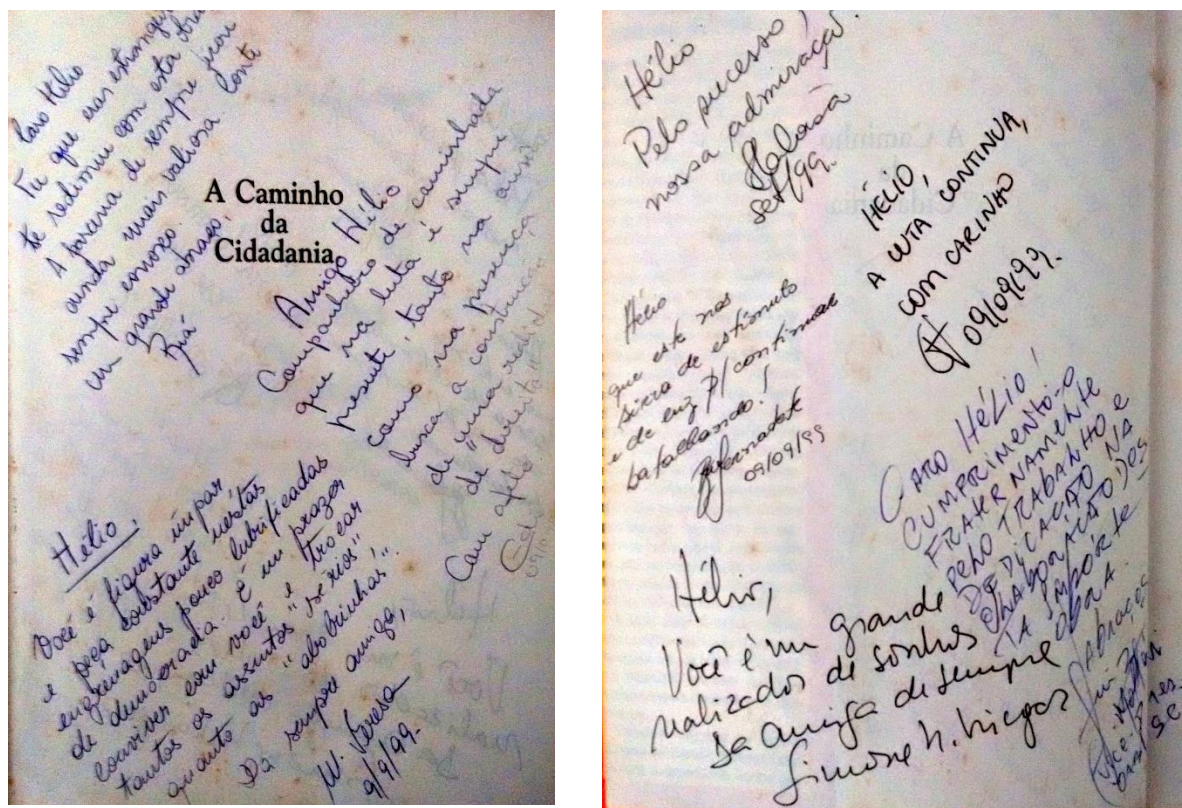 Caro Hélio
Tu que eras estrangeiro
te redimiu com esta obra
A parceria de sempre ficou
ainda mais valiosa. Conte
sempre conosco.
Um grande abraço,
A Caminho
da
Cidadania
Amigo Hélio
Companheiro de caminhada
que na luta é sempre
presente, tanto na
como na presença
busca a construção
de uma
de direita
Com afeto
Hélio,
Você é figura ímpar
e peça constante nestas
engrenagens pouco lubrificadas
de democracia. É um prazer
conviver com você e trocar
tantos os assuntos "sérios"
quanto as "abobrinhas".
Da sempre amiga,
M. Teresa
9/9/99.
Hélio
Pelo sucesso
nossa admiração
set/99.
HÉLIO,
A LUTA CONTINUA,
COM CARINHO
09/09/99.
Hélio
que este nos
sirva de estímulo
e de luz p/ continuar
batalhando!
Bernadete
09/09/99
CARO HÉLIO!
CUMPRIMENTO-O
FRATERNAMENTE
PELO TRABALHO E
DEDICAÇÃO NA
ELABORAÇÃO DES
TA IMPORTANTE
OBRA.
Abraços
Hélio,
Você é um grande
realizador de sonhos
Da amiga de sempre
Simone